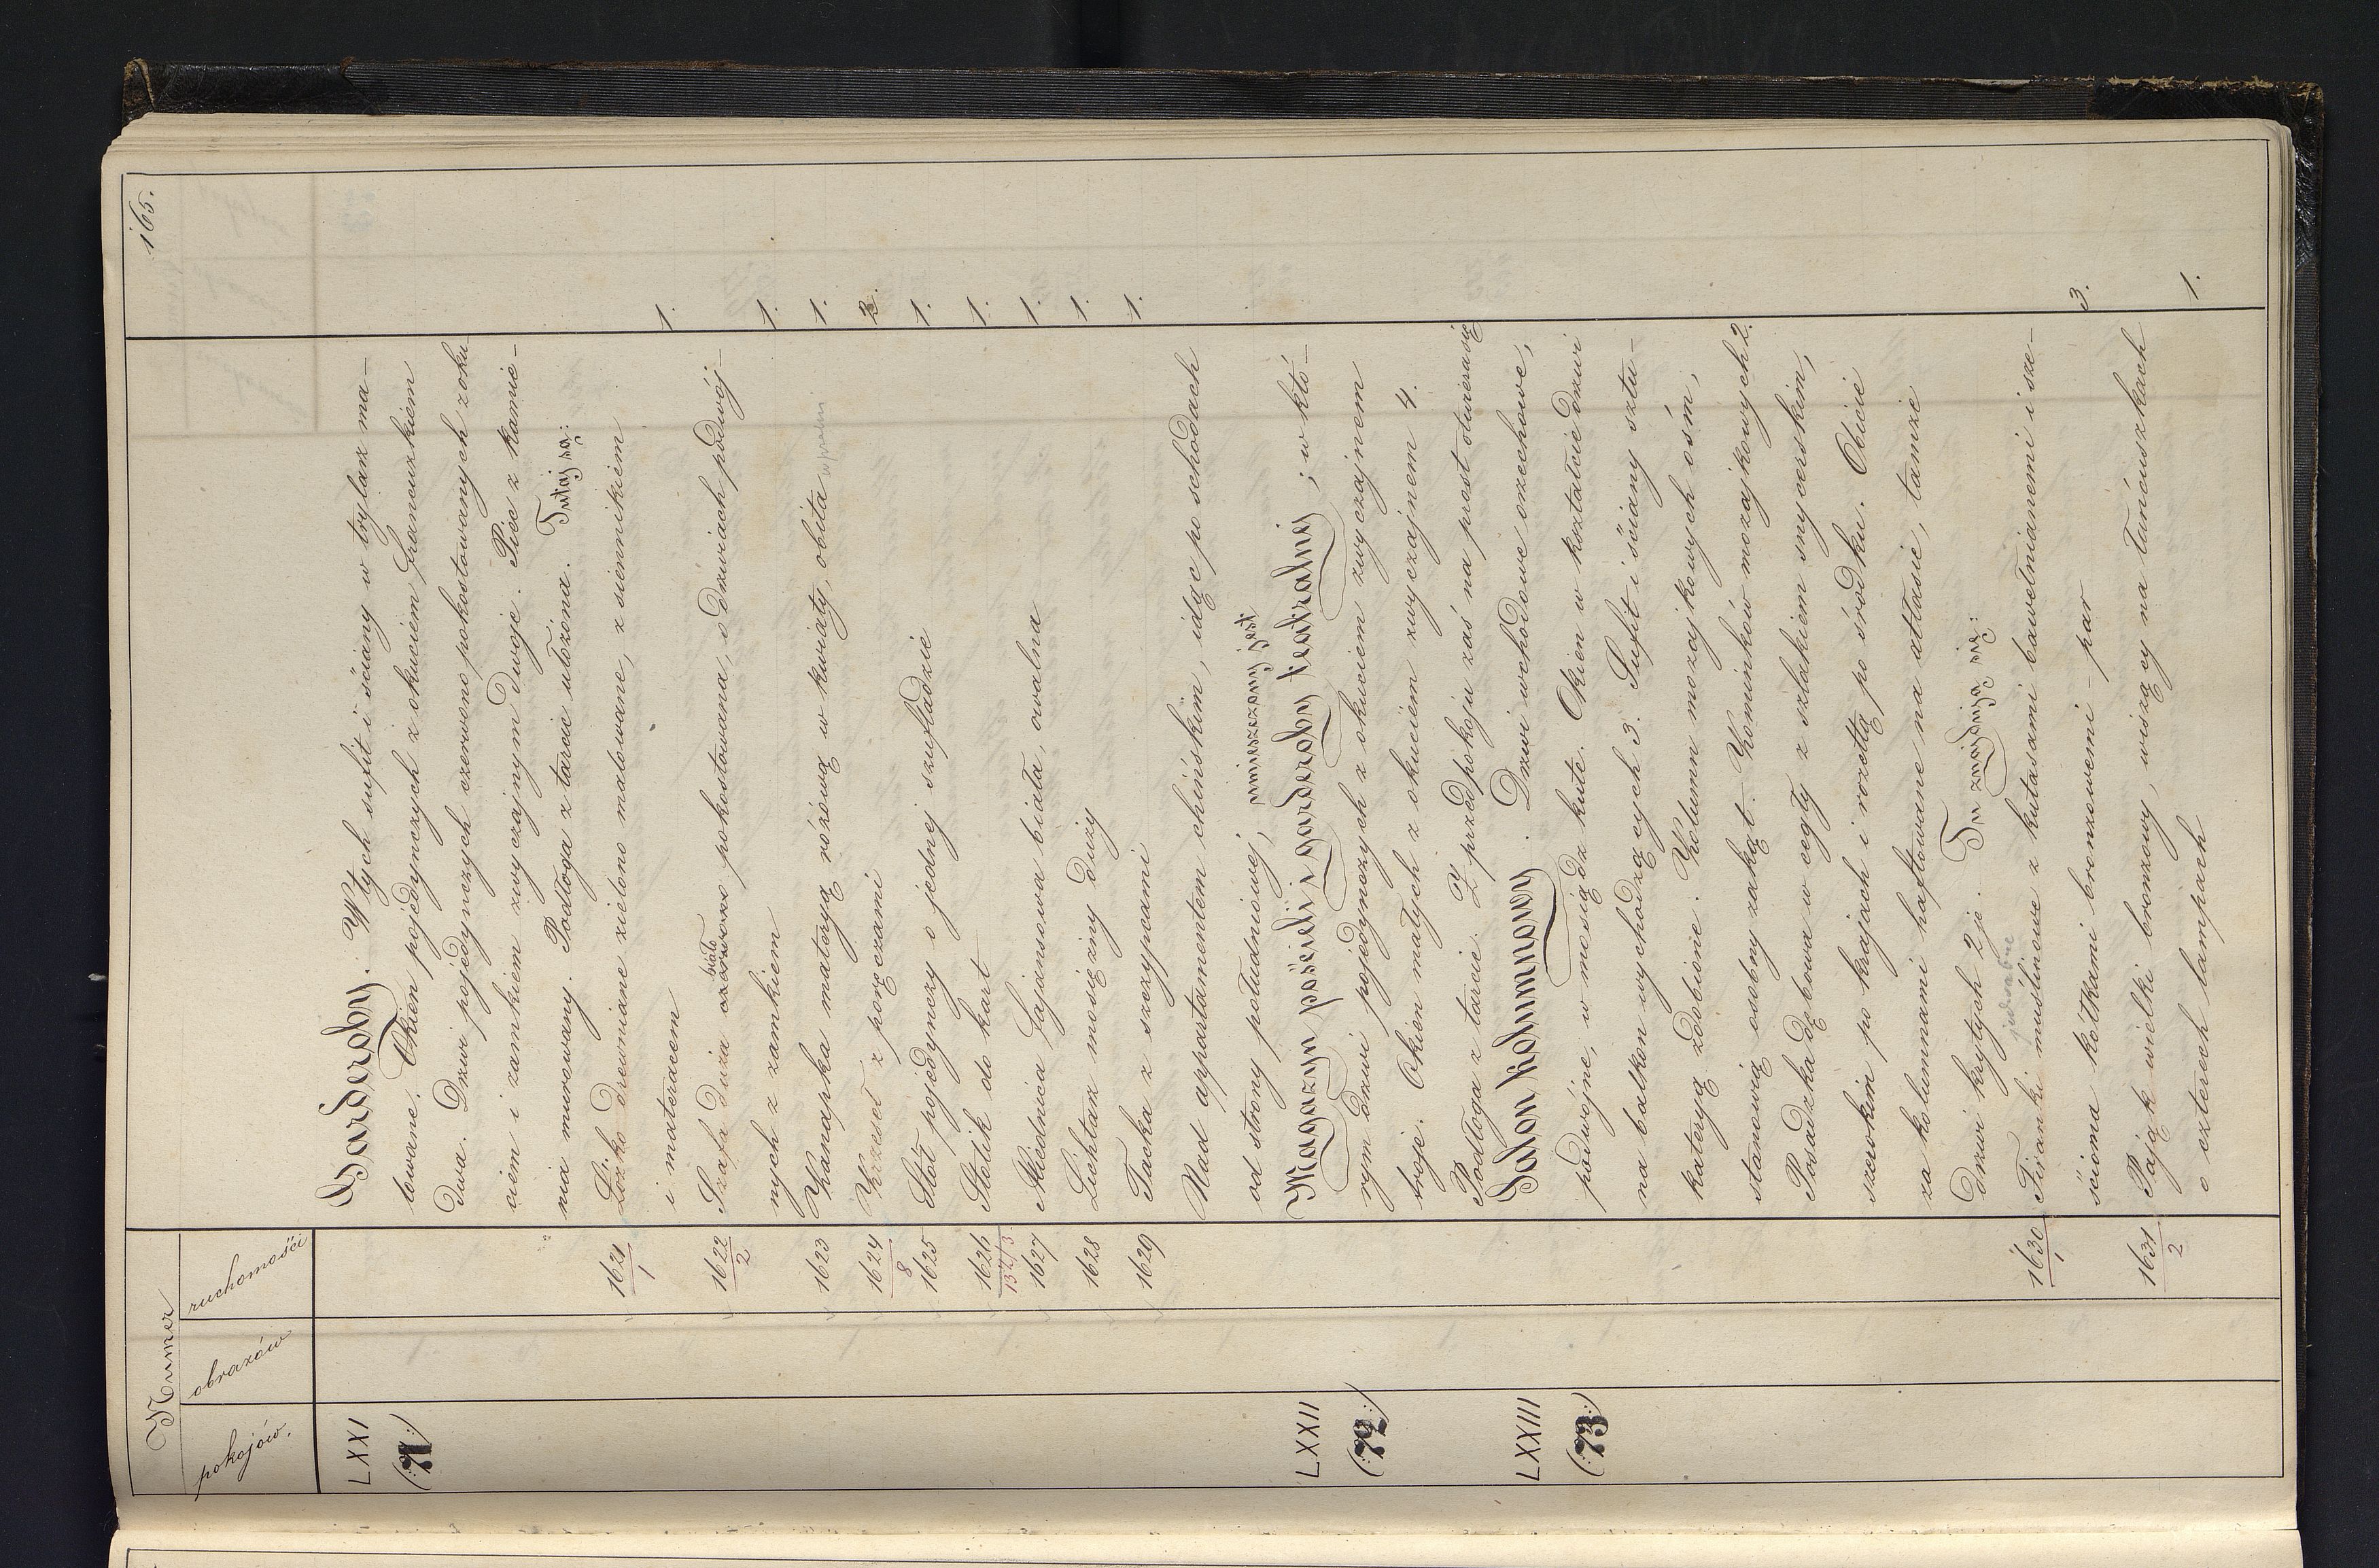 165.
Numer
pokojów.
obrazów
ruchomości
LXXI
(:71:)
Garderoby. W tych sufit i ściany w trylarz ma-
lowane. Okien pojedynczych z okuciem francuzkiem
dwa. Drzwi pojedynczych czerwono pokostowanych z oku-
ciem i zamkiem zwyczajnym dwoje. Piec z kamie-
nia murowany. Podłoga z tarcic ułożona. Tutaj są:
1621/1 Łóżko drewniane zielono malowane, z siennikiem
i materacem 1.
1622/2 Szafa duża czerwono biało pokostowana, o drzwiach podwój-
nych z zamkiem 1.
1623 Kanapka materyą różową w kwiaty, obita w pralni 1.
1624/8 Krzeseł z poręczami 2.
1625 Stół pojedynczy o jednej szufladzie 1.
1626 Stolik do kart 1.
1627 Miednica fajansowa biała, owalna 1.
1628 Lichtarz mosiężny duży 1.
1629 Tacka z szczypcami 1.
Nad appartamentem chińskim, idąc po schodach
od strony południowej, umieszczony jest
LXXII
(:72:)
Magazyn pościeli i garderoby teatralnéj; w któ-
rym drzwi pojedynczych z okuciem zwyczajnem
troje. Okien małych z okuciem zwyczajnem 4.
Podłoga z tarcic. Z przedpokoju zaś na prost otwiera się
LXXIII
(:73:)
Salon kolumnowy. Drzwi wchodowe orzechowe,
podwójne, w mosiądz kute. Okien w kształcie drzwi
na balkon wychodzących 3. Sufit i ściany sztu-
kateryą zdobione. Kolumn mozajkowych ośm,
stanowią osobny zakąt. Kominków mozajkowych 2.
Posadzka dębowa w cegły z szlakiem snycerskim,
szerokim po krajach i rozetą po środku. Obicie
za kolumnami haftowane na atłasie, tamże
drzwi krytych 2je. Tu znajdują się:
jedwabne
1630/1 Firanki muślinowe z kutasami bawełnianemi i sze-
ścioma kółkami bronzowemi - par 3.
1631/2 Pająk wielki bronzowy, wiszący na łańcuszkach
o czterech lampach 1.